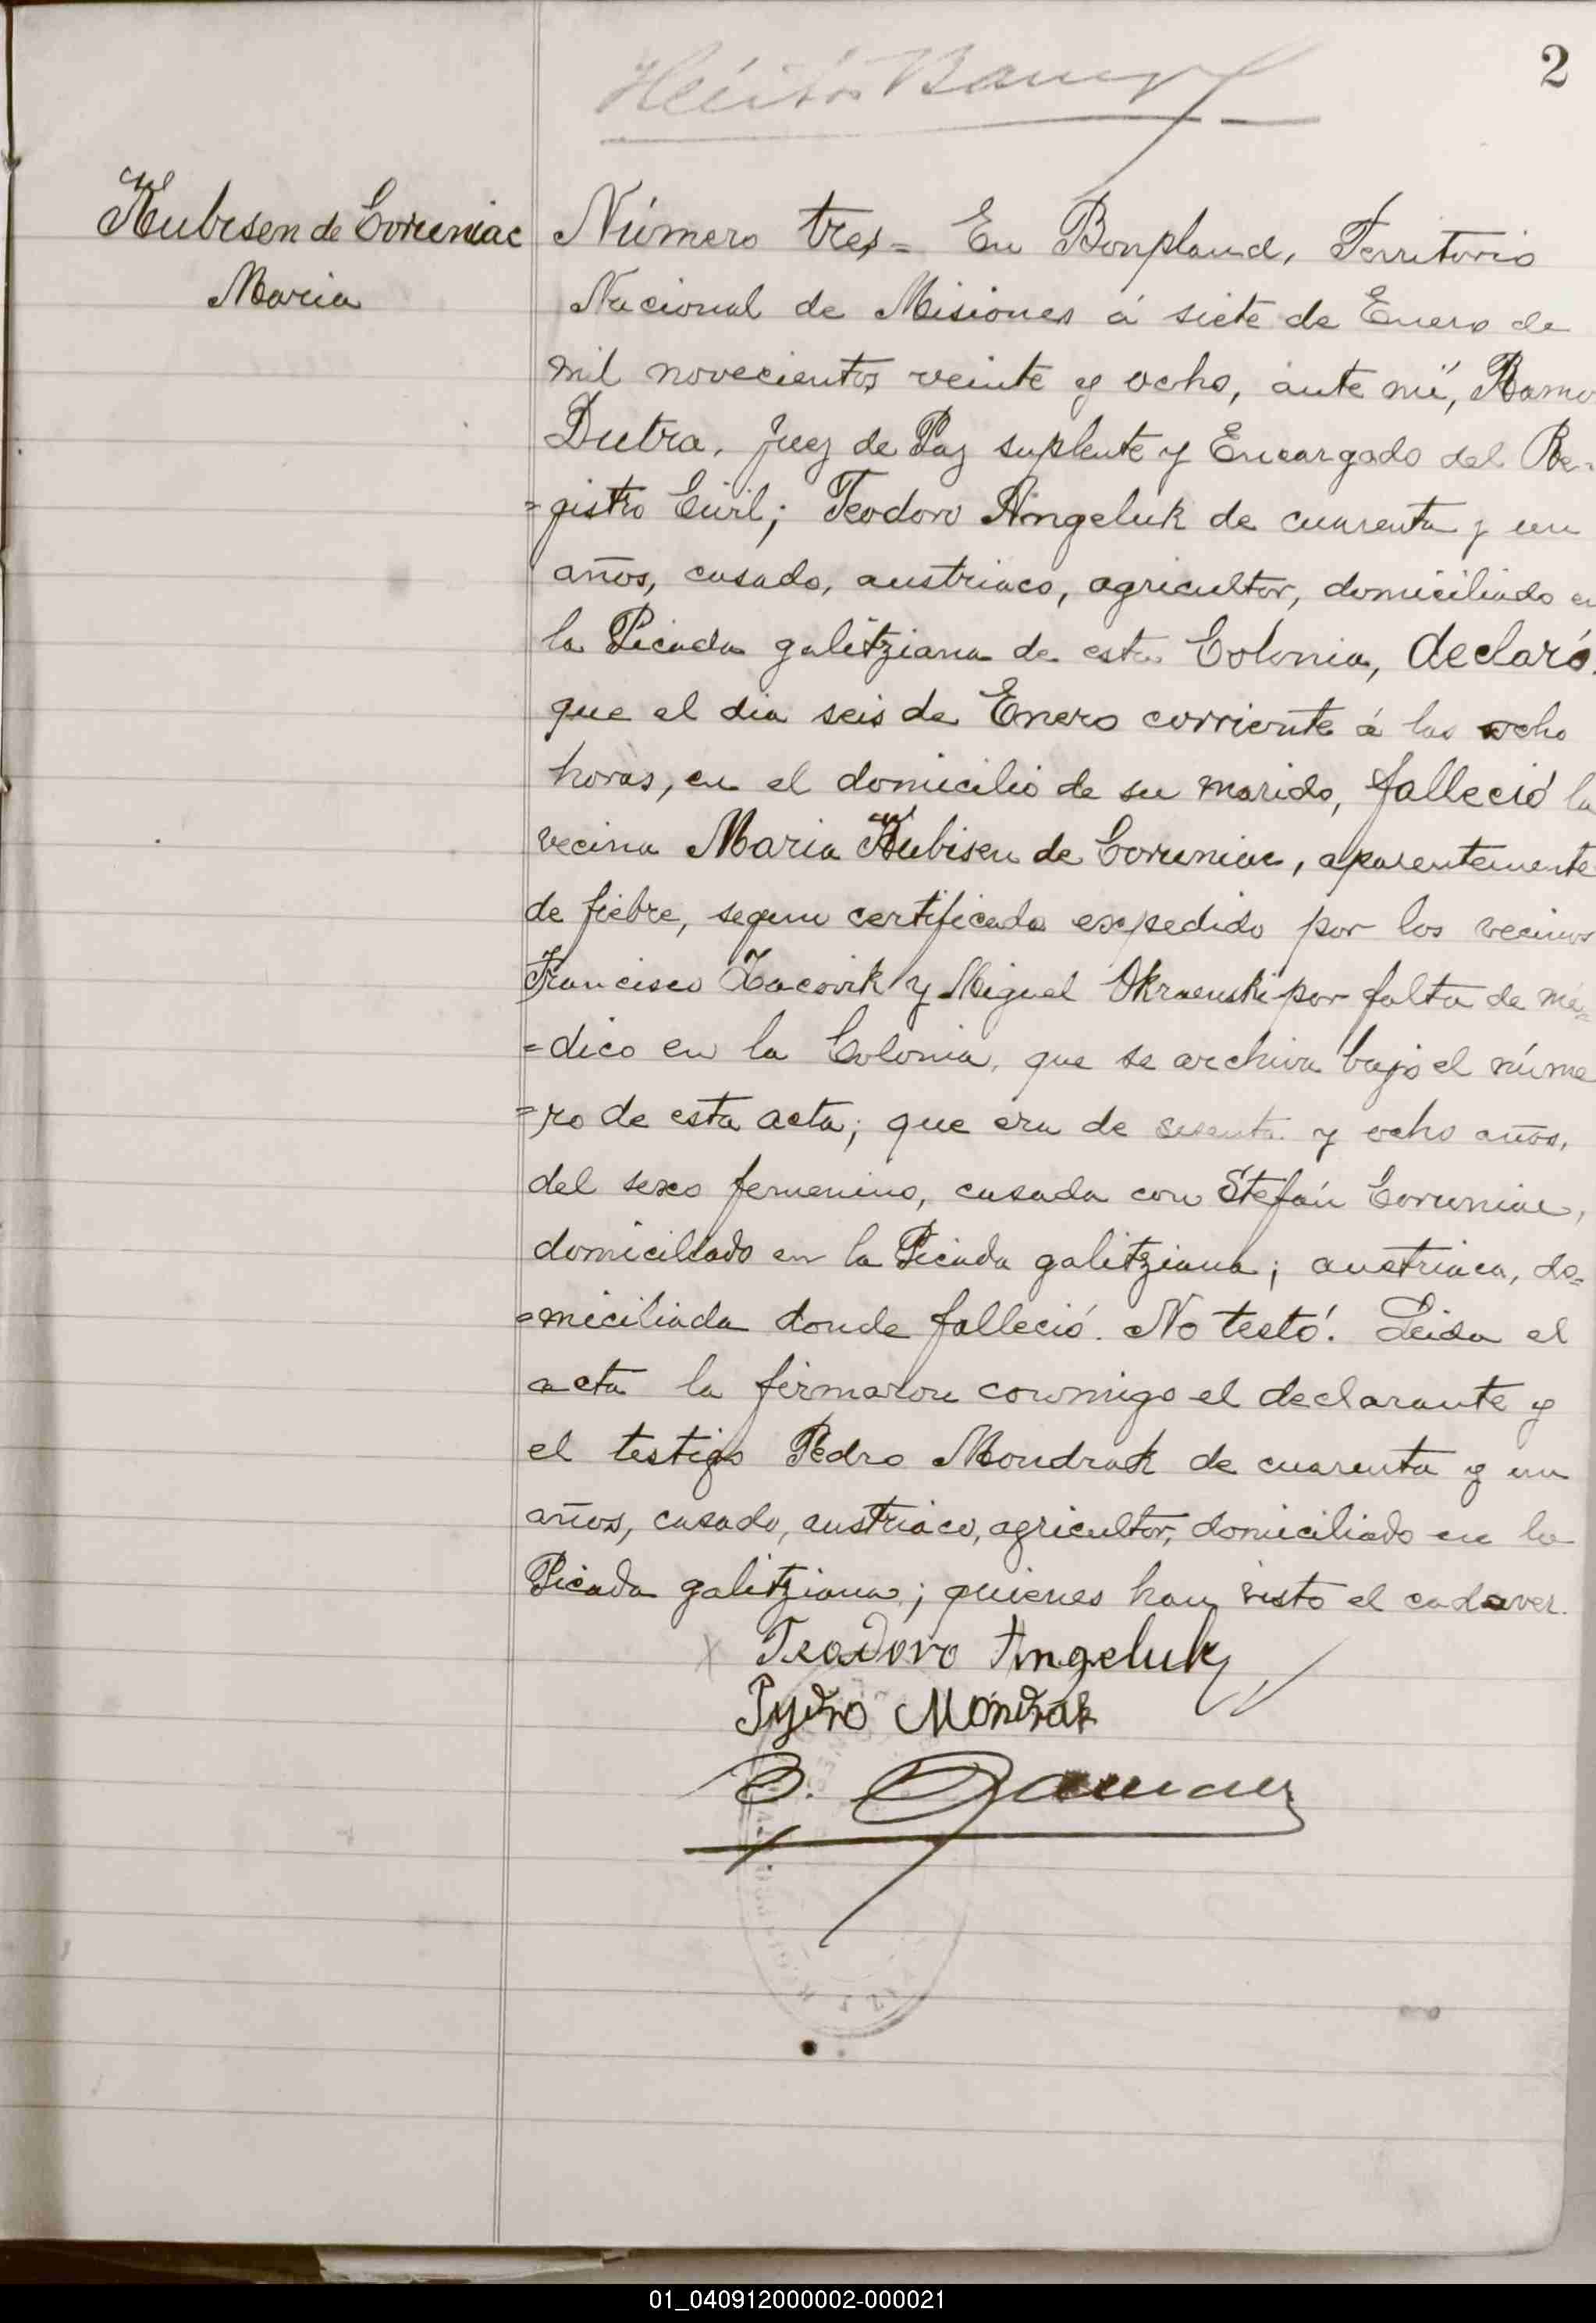 2
Kubisen de Coruniac
Maria
Número tres = En Bonpland, Territorio
Nacional de Misiones á siete de Enero de
mil novecientos veinte y ocho, ante mí, Ramo
Dutra, Juez de Paz suplente y Encargado del Re-
=gistro Civil; Teodoro Angeluk de cuarenta y un
años, casado, austriaco, agricultor, domiciliado en
la Picada galitziana de esta Colonia, declaró:
que el dia seis de Enero corriente á las ocho
horas, en el domicilio de su marido, falleció la
vecina Maria Kubisen de Coruniac, aparentemente
de fiebre, segun certificado expedido por los vecinos
Francisco Zacovik y Miguel Okraenski por falta de mé=
=dico en la Colonia, que se archiva bajo el núme
=ro de esta acta; que era de sesenta y ocho años,
del sexo femenino, casada con Stefán Coruniac,
domiciliado en la Picada galitziana; austriaca, do=
=miciliada donde falleció. No testó. Leida el
acta la firmaron conmigo el declarante y
el testigo Pedro Mondrak de cuarenta y un
años, casado, austriaco, agricultor, domiciliado en la
Picada galitziana; quienes han visto el cadaver.
Teodoro Angeluk
Pydro Mondrak
01_040912000002-000021